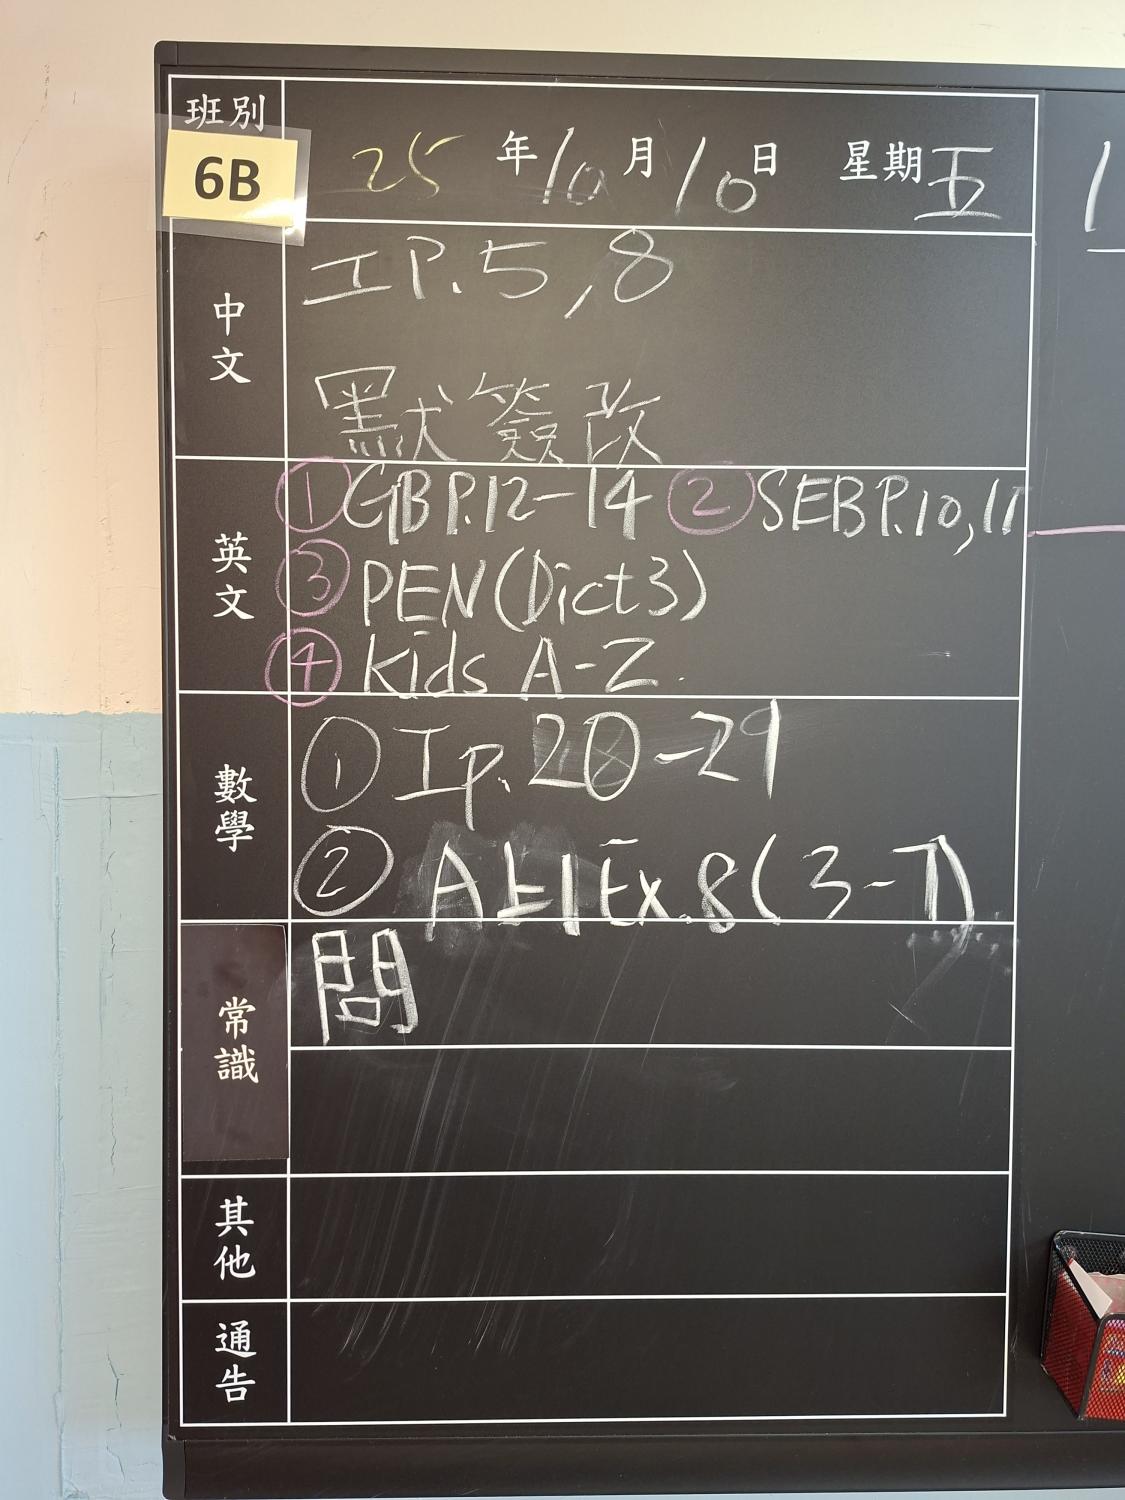 班別
6B
25年10月10日 星期五
中文
工P.5,8
默簽改
英文
① GB P.12-14 ② SEB P.10,11
③ PEN (Dict 3)
④ Kids A-Z.
數學
① Ip. 20-29
② Ex.8(3-7)
常識
其他
通告